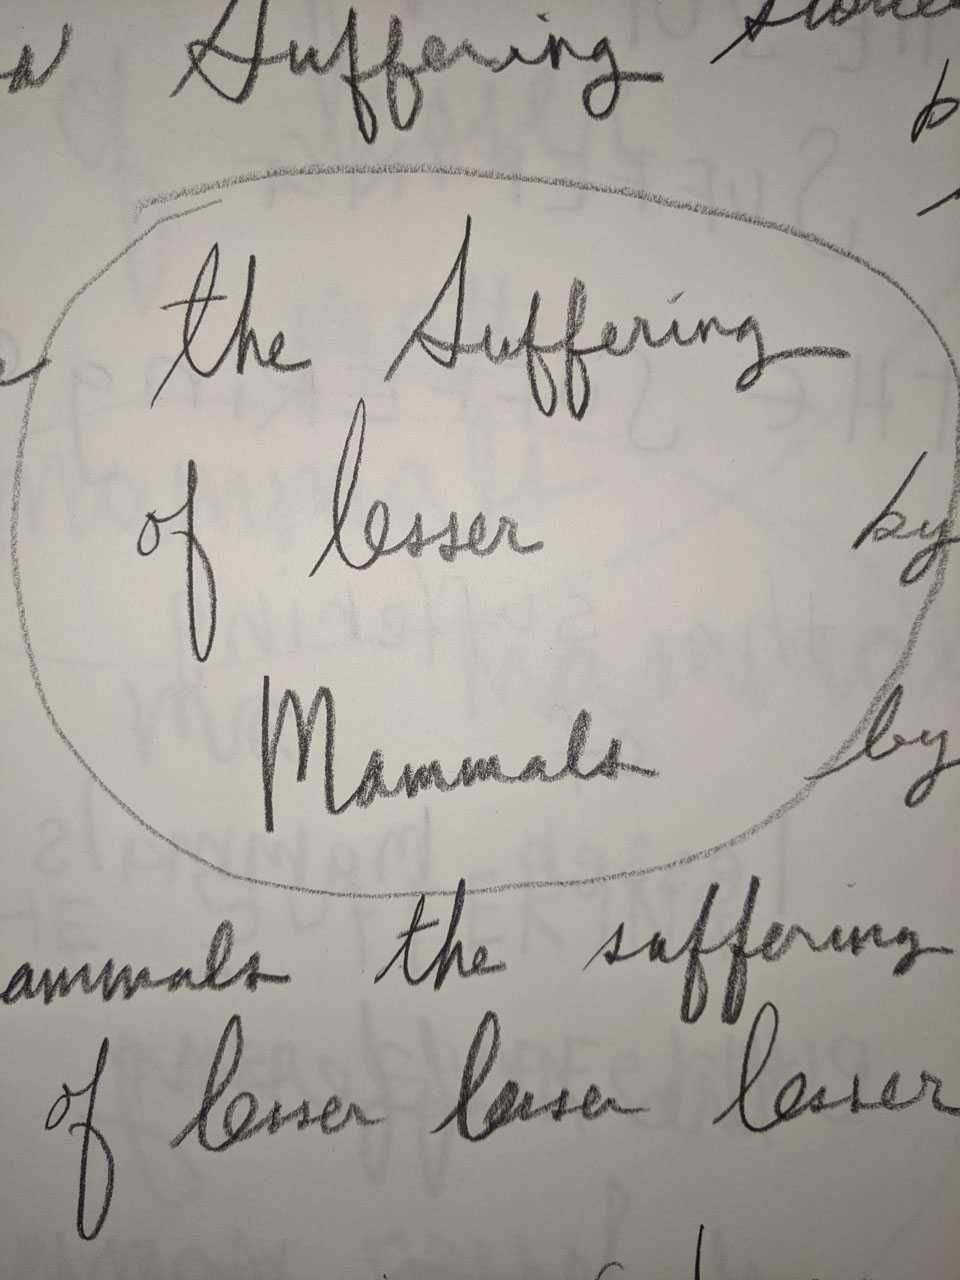 Suffering
the Suffering
of lesser
by
Mammals
by
ammals the suffering
of lesser lesser lesser